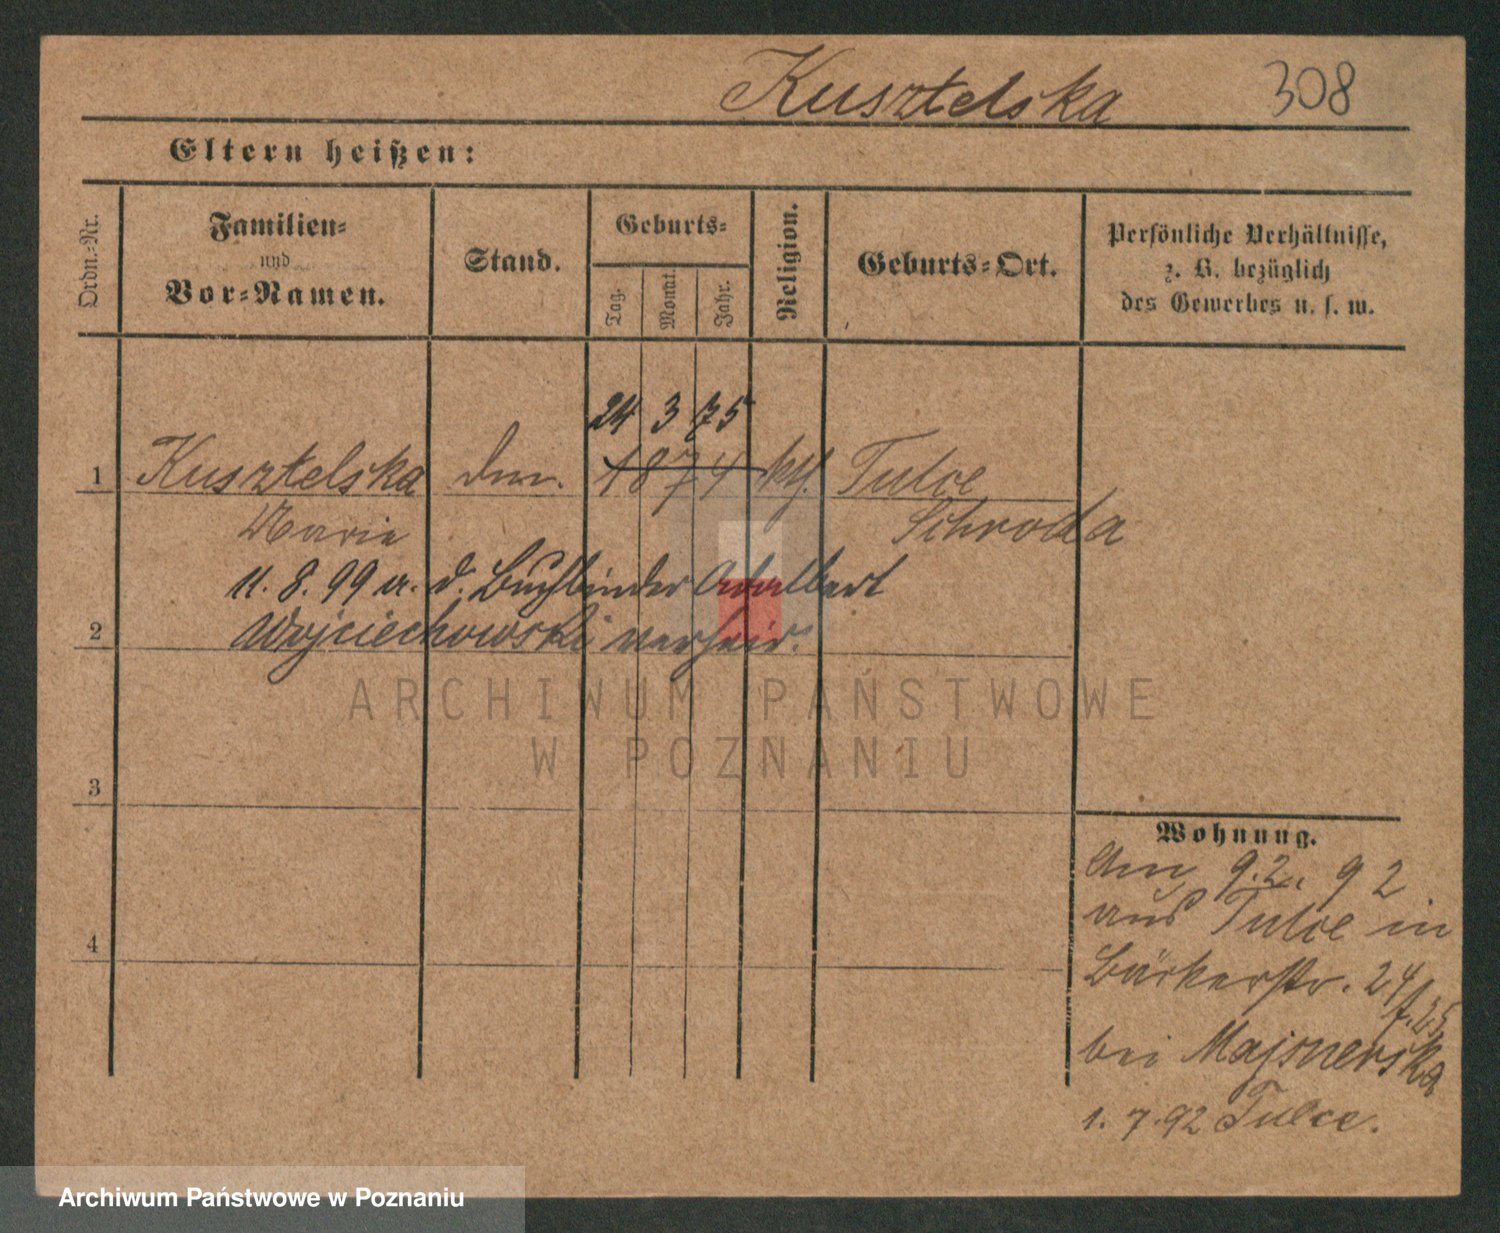 Kusztelska 308
Eltern heißen:
Ordn.-Nr.
Familien-
und
Vor-Namen.
Stand.
Geburts-
Tag.
Monat.
Jahr.
Religion.
Geburts-Ort.
Persönliche Verhältnisse,
z. B. bezüglich
des Gewerbes u. s. w.
24 3 75
1 Kusztelska 1874 kth. Tulce
Marie Schroda
11. 8. 99 a. d. Buchbinder Adalbert
2 Wojciechowski verheir.
ARCHIWUM PAŃSTWOWE
W POZNANIU
3
Wohnung.
Am 9.2. 92
aus Tulce in
4
Bäckerstr. 24
bei Majsnerska
1. 7. 92 Tulce.
Archiwum Państwowe w Poznaniu